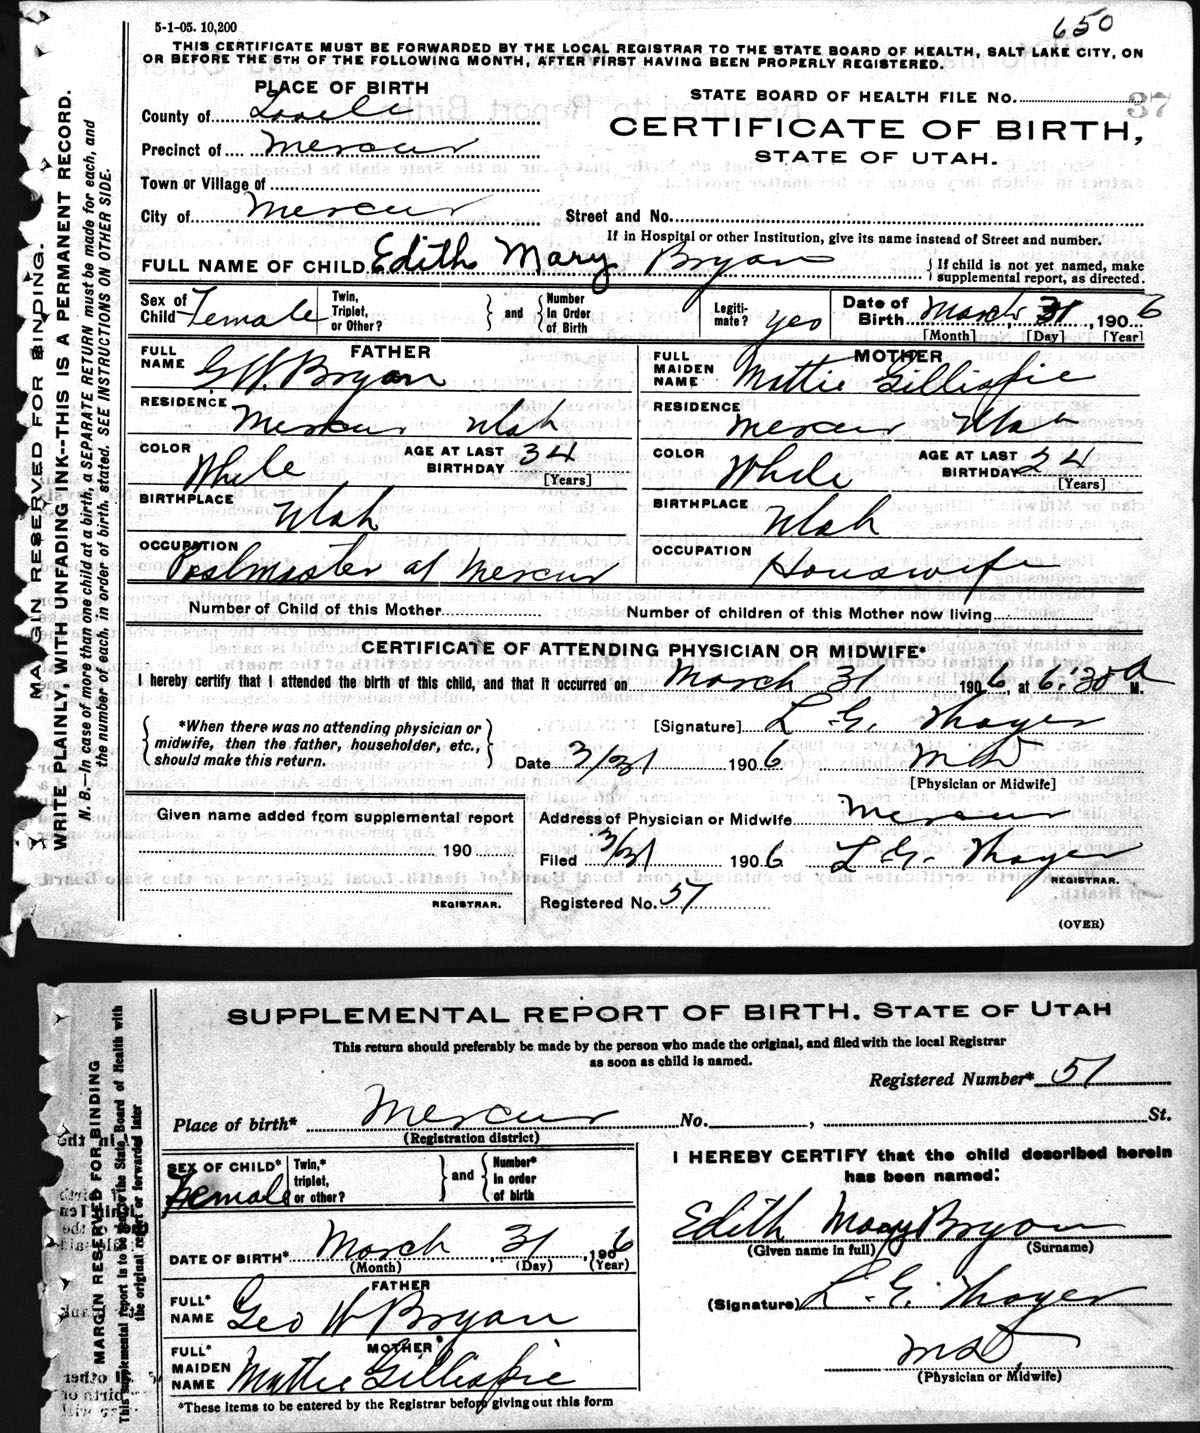 5-1-05. 10,200
650
THIS CERTIFICATE MUST BE FORWARDED BY THE LOCAL REGISTRAR TO THE STATE BOARD OF HEALTH, SALT LAKE CITY, ON
OR BEFORE THE 5TH OF THE FOLLOWING MONTH, AFTER FIRST HAVING BEEN PROPERLY REGISTERED.
MARGIN RESERVED FOR BINDING.
WRITE PLAINLY, WITH UNFADING INK--THIS IS A PERMANENT RECORD.
N. B.—In case of more than one child at a birth, a SEPARATE RETURN must be made for each, and
the number of each, in order of birth, stated. SEE INSTRUCTIONS ON OTHER SIDE.
PLACE OF BIRTH
County of Tooele
Precinct of Mercur
Town or Village of
City of Mercur
STATE BOARD OF HEALTH FILE No. 37
CERTIFICATE OF BIRTH,
STATE OF UTAH.
Street and No.
If in Hospital or other Institution, give its name instead of Street and number.
FULL NAME OF CHILD Edith Mary Bryan
If child is not yet named, make
supplemental report, as directed.
Sex of Child Female
Twin, Triplet, or Other?
and
Number In Order of Birth
Legiti-mate? yes
Date of Birth March 31, 1906
[Month] [Day] [Year]
FATHER
FULL NAME G.W. Bryan
RESIDENCE Mercur Utah
COLOR White
AGE AT LAST BIRTHDAY 34
[Years]
BIRTHPLACE Utah
OCCUPATION Postmaster at Mercur
MOTHER
FULL MAIDEN NAME Mattie Gillispie
RESIDENCE Mercur Utah
COLOR White
AGE AT LAST BIRTHDAY 24
[Years]
BIRTHPLACE Utah
OCCUPATION Housewife
Number of Child of this Mother
Number of children of this Mother now living
CERTIFICATE OF ATTENDING PHYSICIAN OR MIDWIFE*
I hereby certify that I attended the birth of this child, and that it occurred on March 31 1906, at 6:30 A M.
*When there was no attending physician or
midwife, then the father, householder, etc.,
should make this return.
[Signature] L. G. Thayer
Date 3/31 1906 MD
[Physician or Midwife]
Given name added from supplemental report
190
REGISTRAR.
Address of Physician or Midwife Mercur
Filed 3/31 1906 L. G. Thayer
REGISTRAR.
Registered No. 51
(OVER)
MARGIN RESERVED FOR BINDING
This supplemental report is to be sent to the State Board of Health with
the original report or forwarded later
SUPPLEMENTAL REPORT OF BIRTH, STATE OF UTAH
This return should preferably be made by the person who made the original, and filed with the local Registrar
as soon as child is named.
Registered Number* 51
Place of birth* Mercur No. , St.
(Registration district)
SEX OF CHILD* Female
Twin,* triplet, or other?
and
Number* in order of birth
DATE OF BIRTH* March, 31, 1906
(Month) (Day) (Year)
FATHER
FULL* NAME Geo W Bryan
MOTHER*
FULL* MAIDEN NAME Mattie Gillispie
*These items to be entered by the Registrar before giving out this form
I HEREBY CERTIFY that the child described herein
has been named:
Edith Mary Bryan
(Given name in full) (Surname)
(Signature) L. G. Thayer
MD,
(Physician or Midwife)